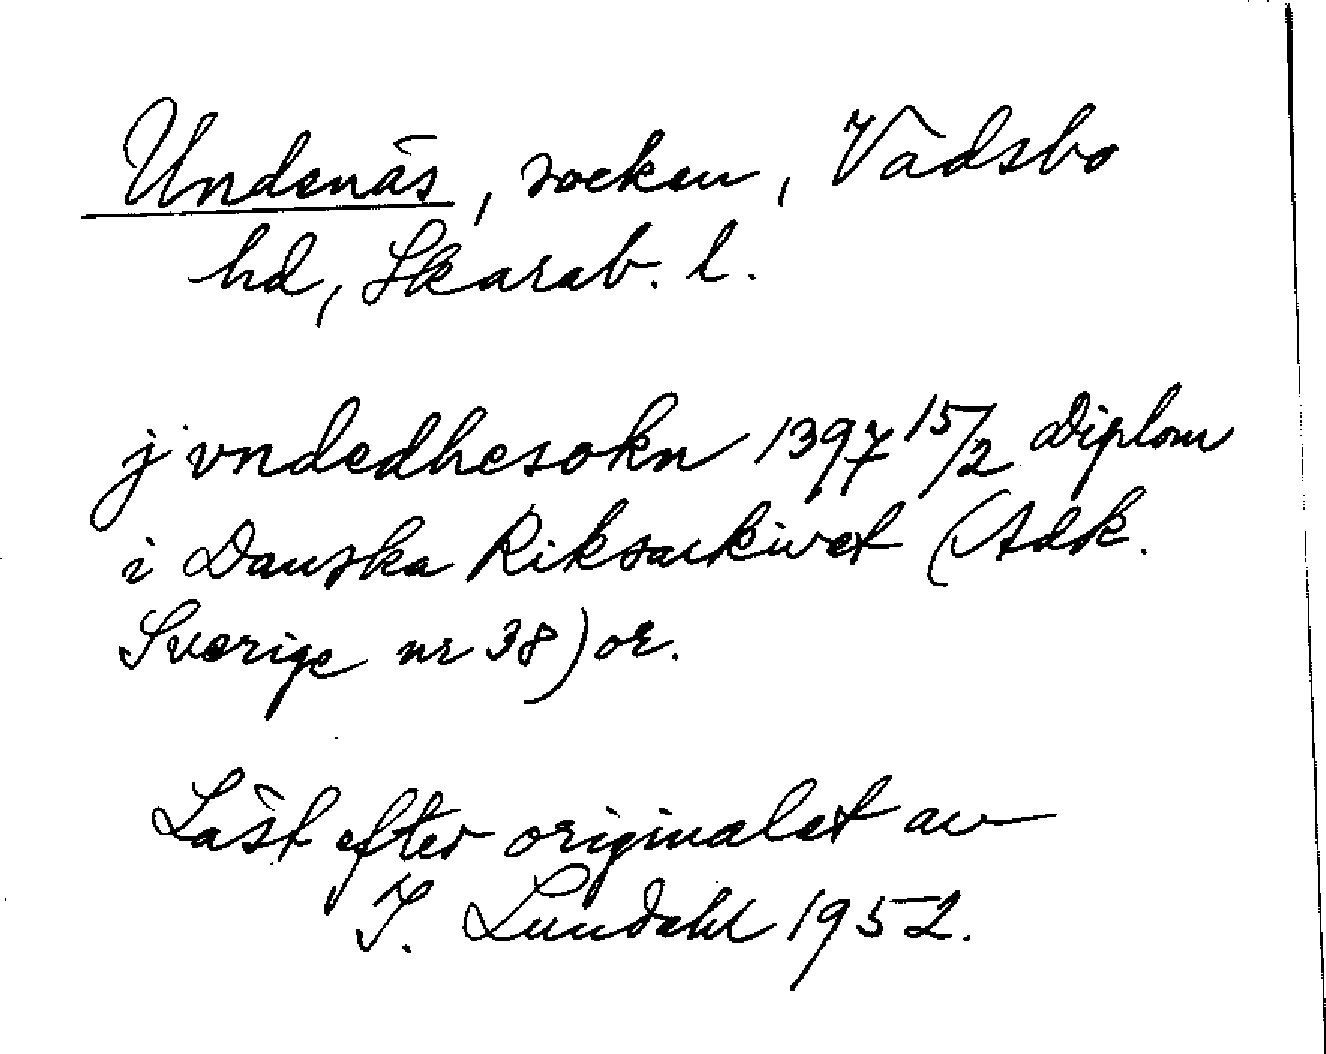 Undenäs, socken, Vadsbo
hd, Skarab. l.
j vndedhesokn 1397 15/2 Diplom
i Danska Riksarkivet (Adk.
Sverige nr 38) or.
Läst efter originalet av
I. Lundahl 1952.